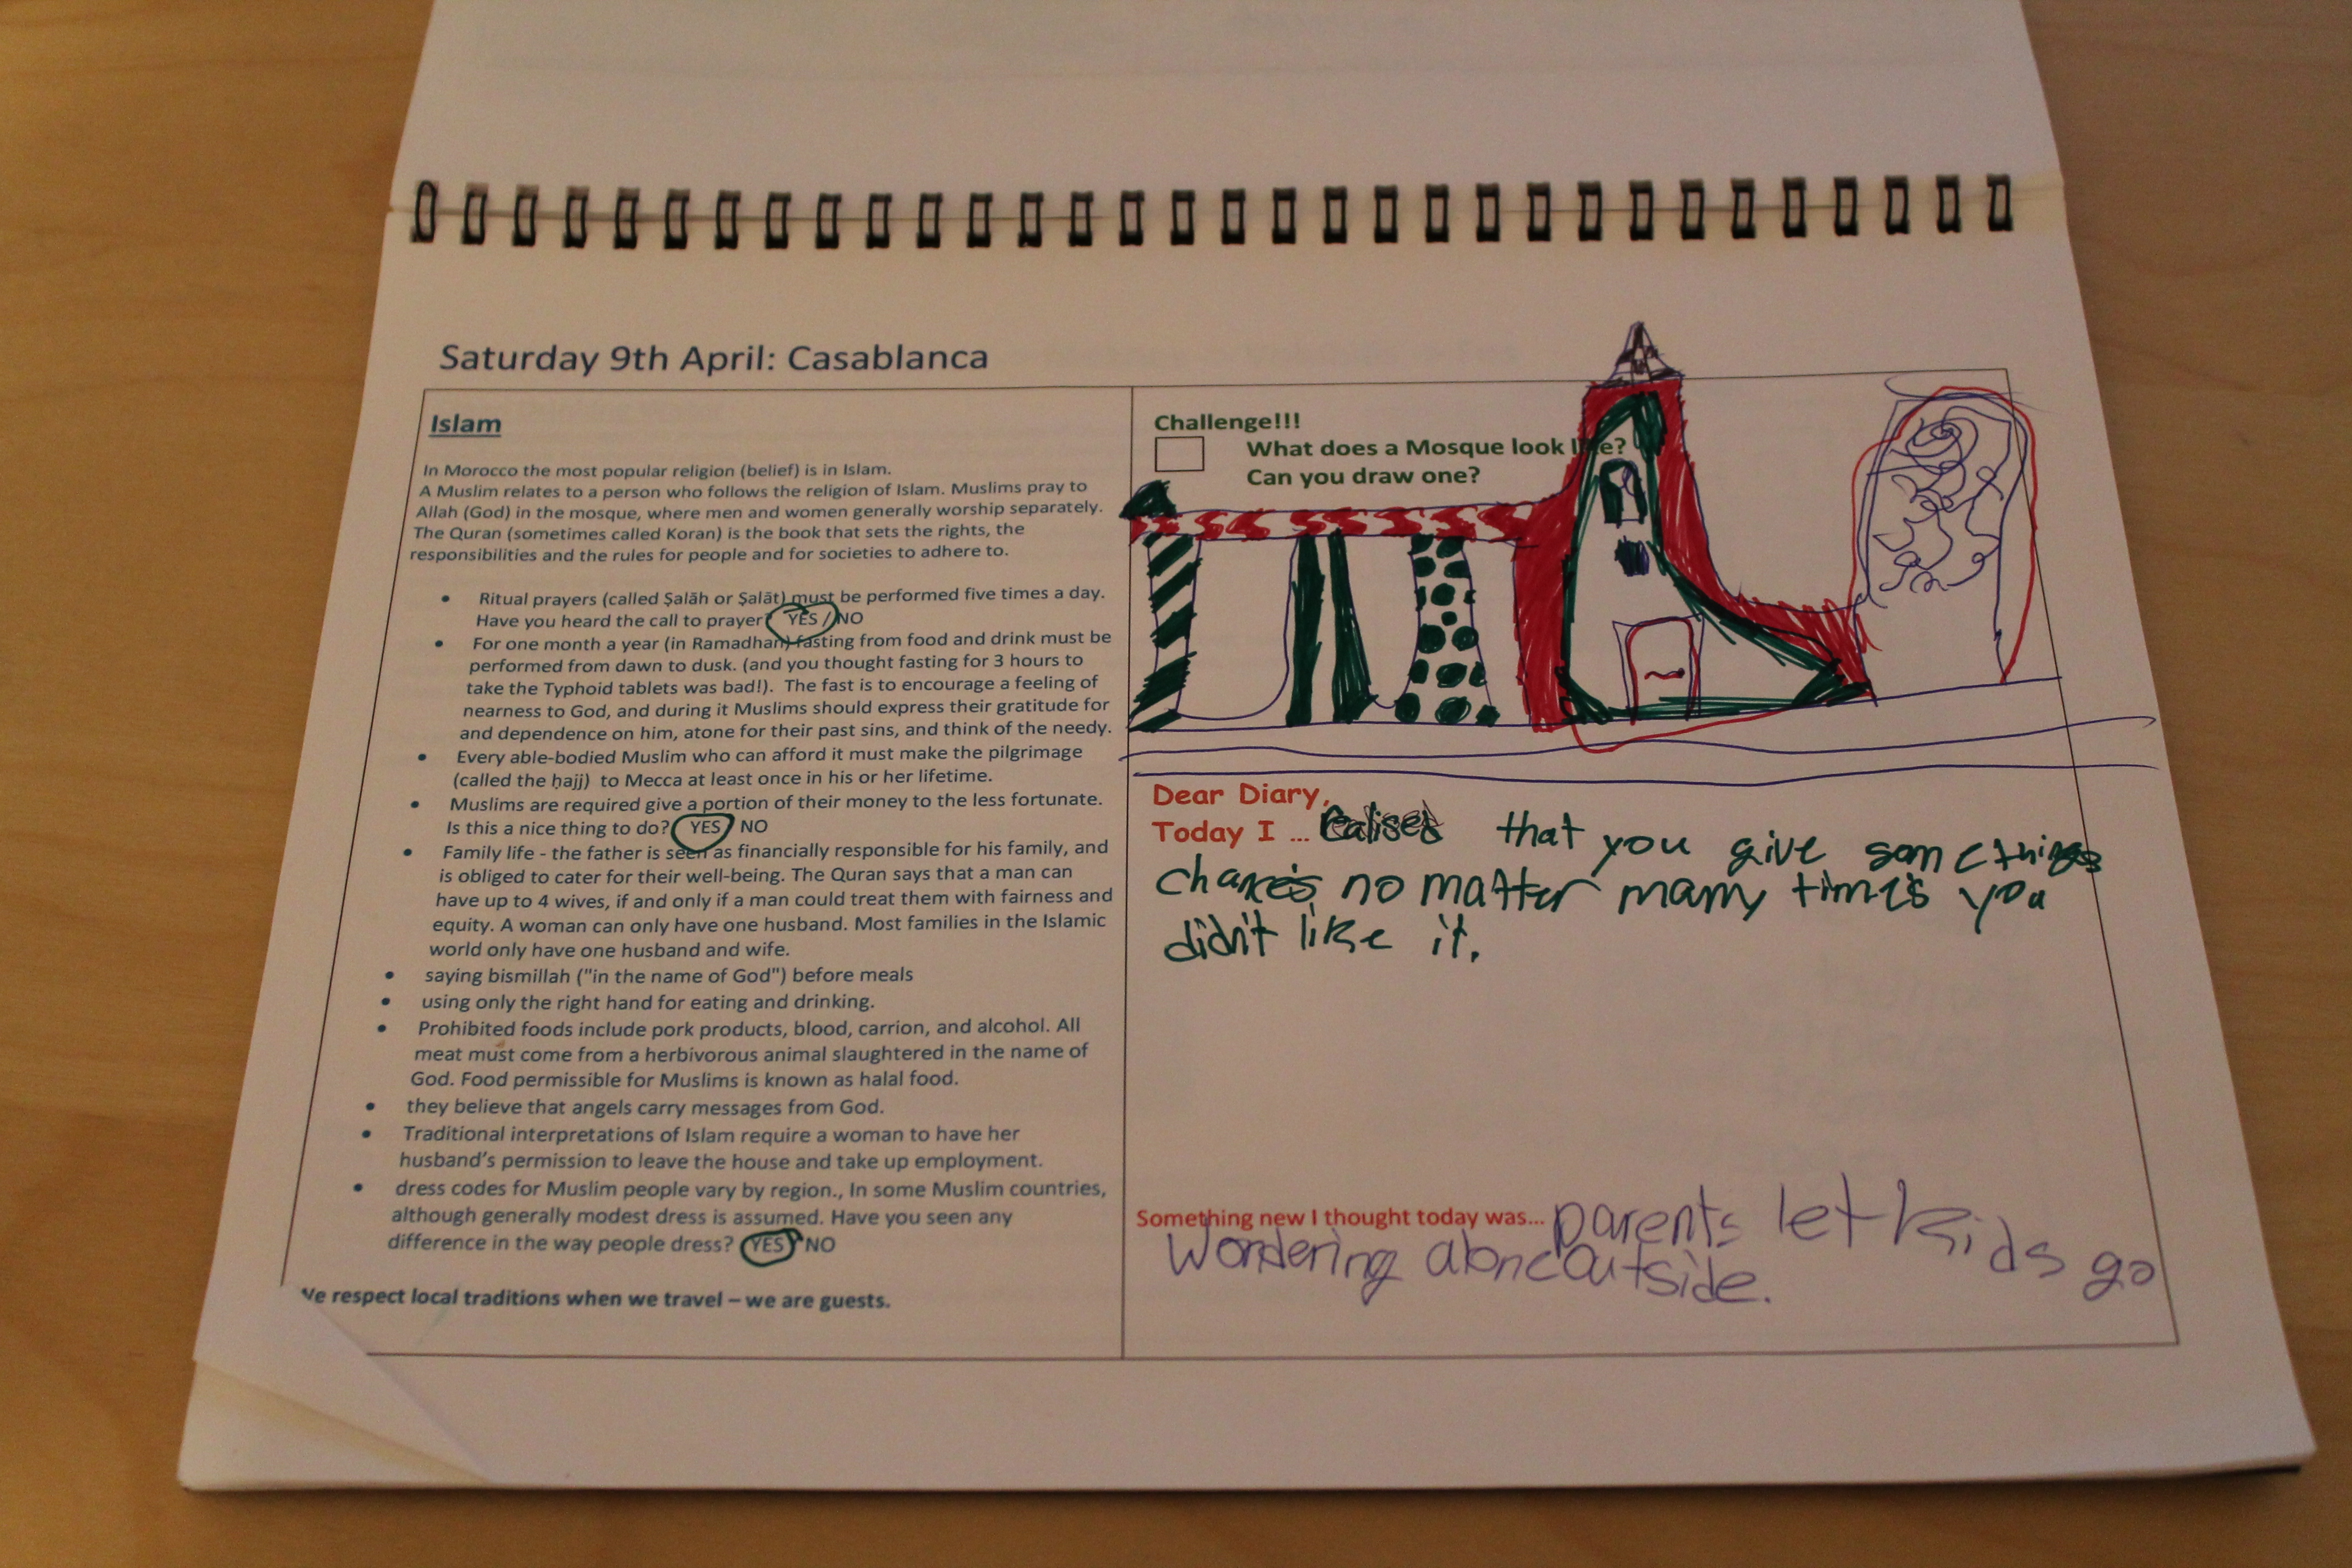 Saturday 9th April: Casablanca
Islam
In Morocco the most popular religion (belief) is in Islam.
A Muslim relates to a person who follows the religion of Islam. Muslims pray to
Allah (God) in the mosque, where men and women generally worship separately.
The Quran (sometimes called Koran) is the book that sets the rights, the
responsibilities and the rules for people and for societies to adhere to.
• Ritual prayers (called Ṣalāh or Ṣalāt) must be performed five times a day.
Have you heard the call to prayer? YES / NO
• For one month a year (in Ramadhan) fasting from food and drink must be
performed from dawn to dusk. (and you thought fasting for 3 hours to
take the Typhoid tablets was bad!). The fast is to encourage a feeling of
nearness to God, and during it Muslims should express their gratitude for
and dependence on him, atone for their past sins, and think of the needy.
• Every able-bodied Muslim who can afford it must make the pilgrimage
(called the ḥajj) to Mecca at least once in his or her lifetime.
• Muslims are required give a portion of their money to the less fortunate.
Is this a nice thing to do? YES / NO
• Family life - the father is seen as financially responsible for his family, and
is obliged to cater for their well-being. The Quran says that a man can
have up to 4 wives, if and only if a man could treat them with fairness and
equity. A woman can only have one husband. Most families in the Islamic
world only have one husband and wife.
• saying bismillah ("in the name of God") before meals
• using only the right hand for eating and drinking.
• Prohibited foods include pork products, blood, carrion, and alcohol. All
meat must come from a herbivorous animal slaughtered in the name of
God. Food permissible for Muslims is known as halal food.
• they believe that angels carry messages from God.
• Traditional interpretations of Islam require a woman to have her
husband's permission to leave the house and take up employment.
• dress codes for Muslim people vary by region., In some Muslim countries,
although generally modest dress is assumed. Have you seen any
difference in the way people dress? YES / NO
We respect local traditions when we travel – we are guests.
Challenge!!!
What does a Mosque look like?
Can you draw one?
Dear Diary,
Today I ... realised that you give some things
chances no matter many times you
didn't like it.
Something new I thought today was... parents let kids go
wondering alone outside.